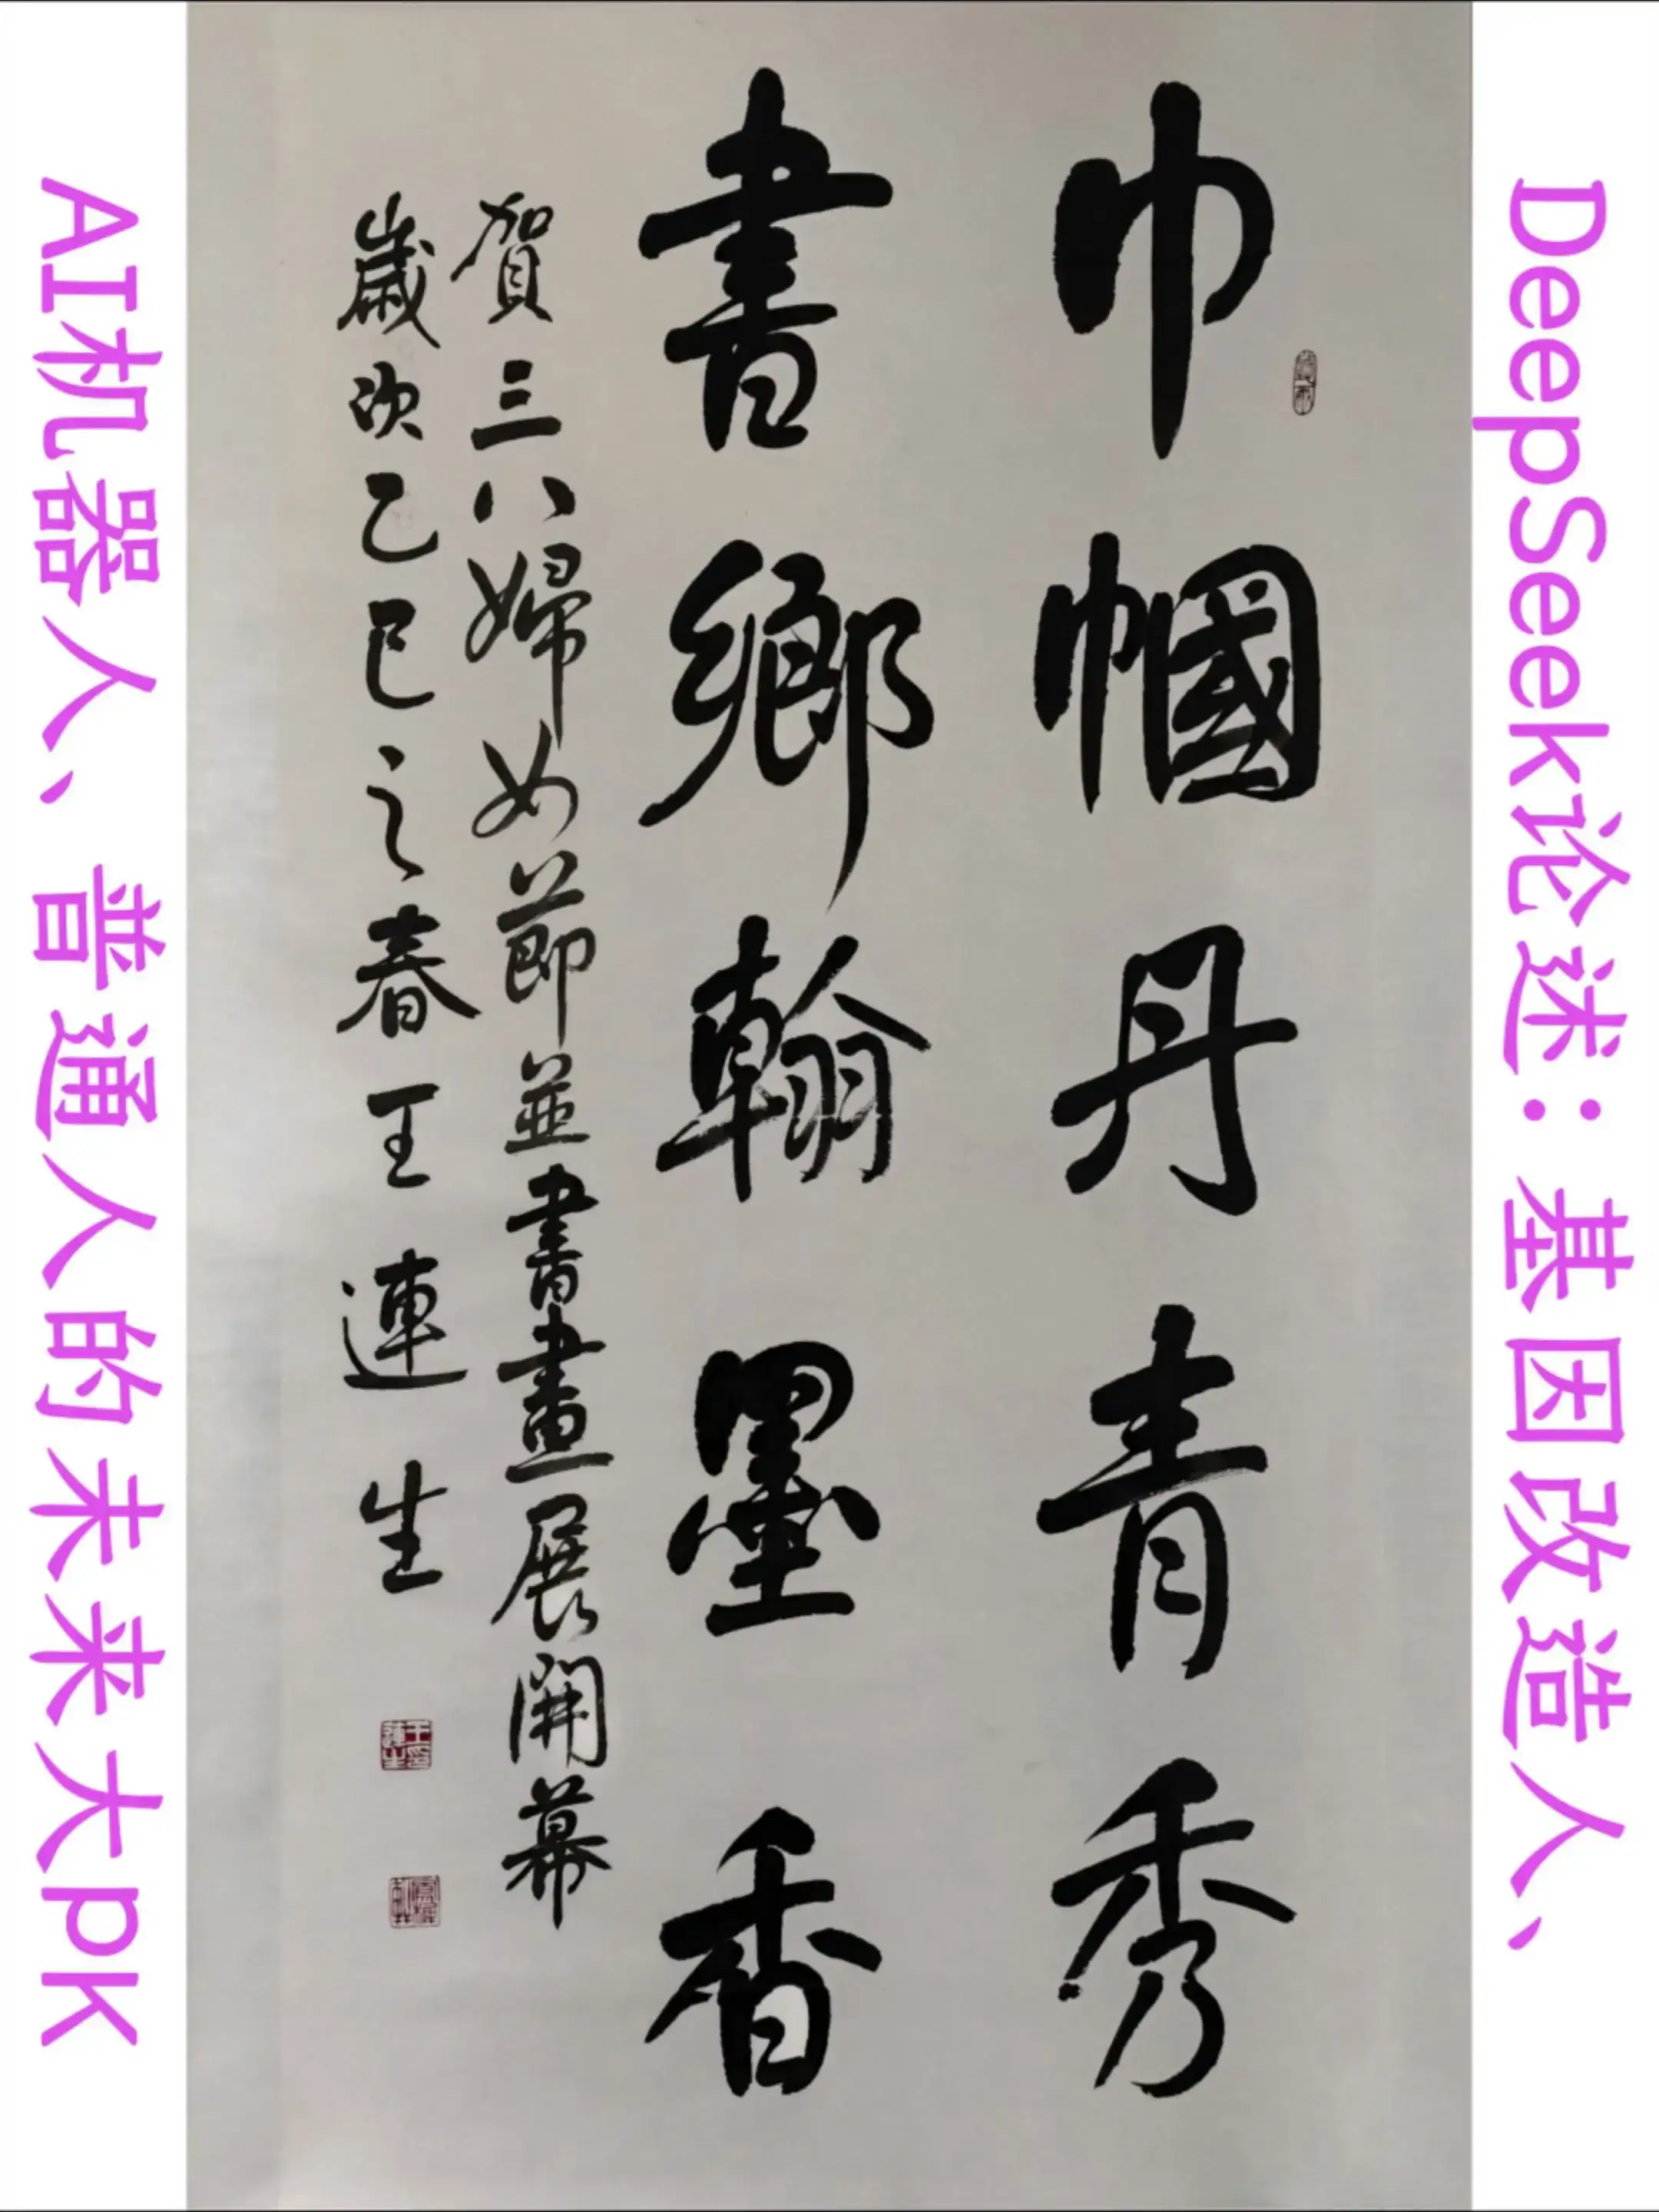 DeepSeek论述：基因改造人、
AI机器人、普通人的未来大pK
巾帼丹青秀
書鄉翰墨香
賀三八婦女節並書畫展開幕
歲次乙巳之春王連生